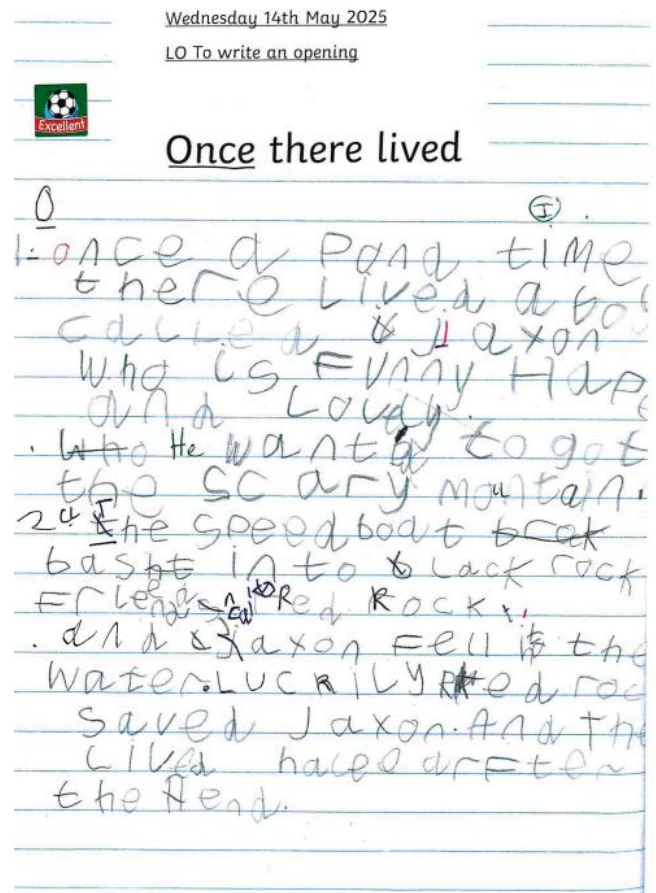 Wednesday 14th May 2025
LO To write an opening
Excellent
Once there lived
O
I
1. once a Pona time
there Lived a bo
called Jaxon
Who is Funny Hap
and Lovely.
Who He wanted to got
the scary mountain.
2 The speedboat brak
basht in to black rock
Friend called Red Rock
and Jaxon Fell in the
water. LUCKILY Red roc
saved Jaxon. And The
Lived hacee arFter
the Aend.